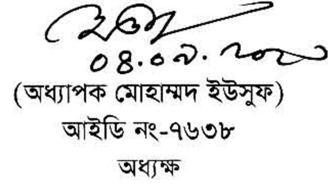 ০৪.০৯.২০২০
(অধ্যাপক মোহাম্মদ ইউসুফ)
আইডি নং-৭৬৩৮
অধ্যক্ষ